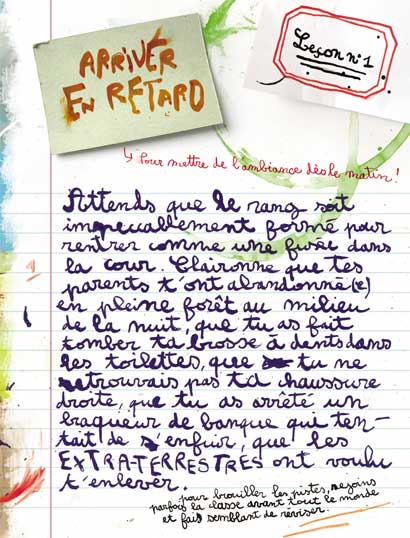 ARRIVER
EN RETARD
Leçon n°1
↳ Pour mettre de l'ambiance dès le matin !
Attends que le rang soit
impeccablement formé pour
rentrer comme une fusée dans
la cour. Claironne que tes
parents t'ont abandonné(e)
en pleine forêt au milieu
de la nuit, que tu as fait
tomber ta brosse à dents dans
les toilettes, que tu ne
retrouvais pas ta chaussure
droite, que tu as arrêté un
braqueur de banque qui ten-
tait de s'enfuir, que les
EXTRA-TERRESTRES ont voulu
t'enlever.
pour brouiller les pistes, rejoins
parfois la classe avant tout le monde
et fais semblant de réviser.